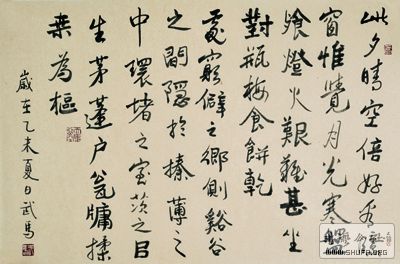 此夕晴空倍好看
窗惟覺月光寒盤
飧燈火艱難甚坐
對瓶梅食餅乾
處窮僻之鄉側谿谷
之間隱於榛薄之
中環堵之室茨之以
生茅蓬戶瓮牖揉
桑為樞
歲在乙未夏日武馬
WWW.SHUFA.ORG